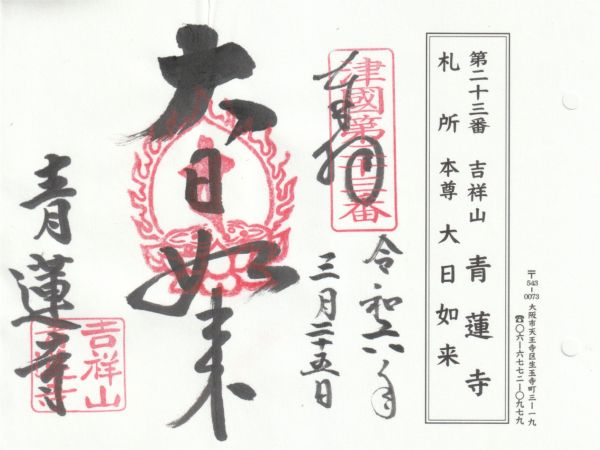 第二十三番 吉祥山 青蓮寺
札所 本尊 大日如来
〒543-0073 大阪市天王寺区生玉寺町三-一九
☎〇六-六七七二-〇九七九
津國第廿三番
奉拝
令和六年
三月二十五日
大日如来
青蓮寺
吉祥山
青蓮寺